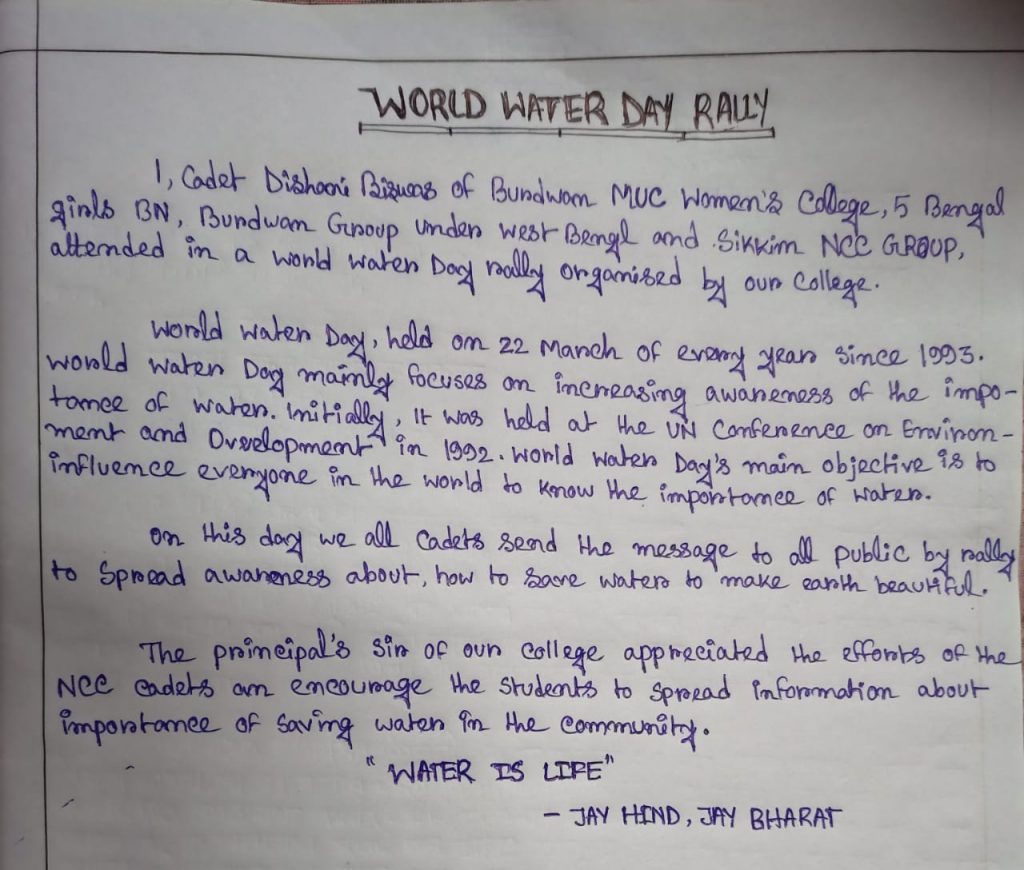 WORLD WATER DAY RALLY
I, Cadet Dishani Biswas of Burdwan MUC Women's College, 5 Bengal
girls BN, Burdwan Group under west Bengl and Sikkim NCC GROUP,
attended in a world water Day rally organised by our College.
World water Day, held on 22 March of every year since 1993.
World water Day mainly focuses on increasing awareness of the impo-
tance of water. Initially, it was held at the UN Conference on Environ-
ment and Development in 1992. World water Day's main objective is to
influence everyone in the world to know the importance of water.
On this day we all Cadets send the message to all public by rally
to spread awareness about, how to save water to make earth beautiful.
The principal's sir of our college appreciated the efforts of the
NCC cadets an encourage the students to spread information about
importance of saving water in the community.
"WATER IS LIFE"
- JAY HIND, JAY BHARAT